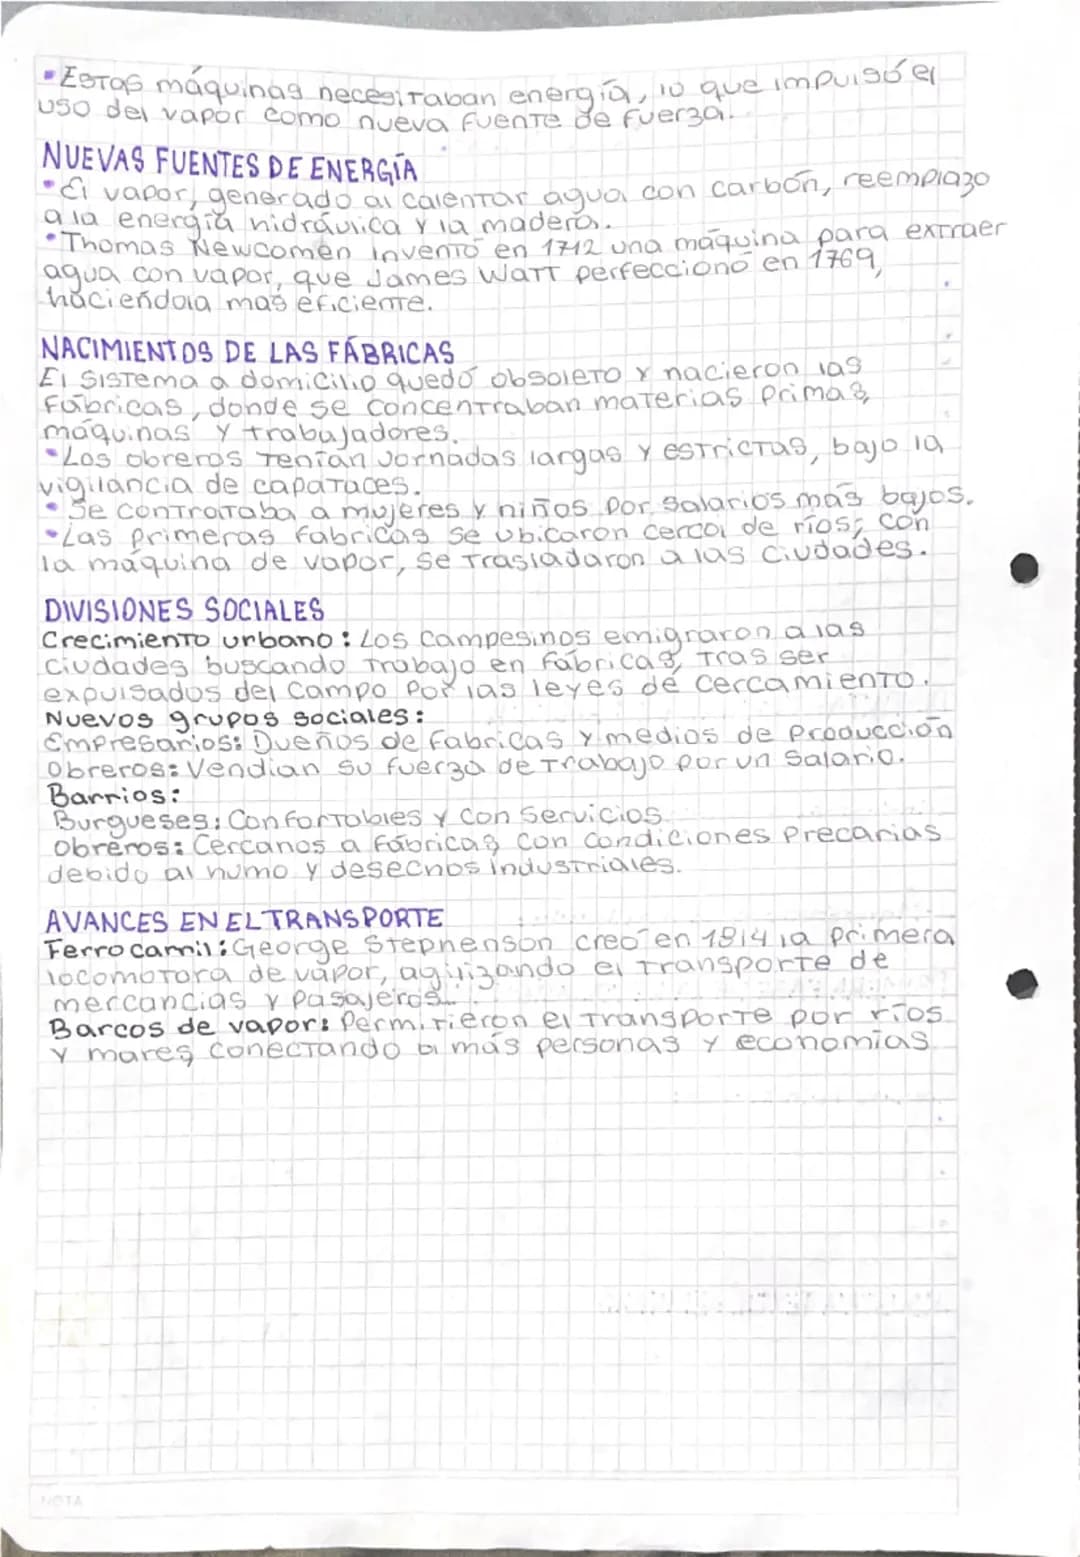 • Estas máquinas necesitaban energía, lo que impulsó el
uso del vapor como nueva fuente de fuerza.
NUEVAS FUENTES DE ENERGÍA
• El vapor, generado al calentar agua con carbón, reemplazo
a la energía hidráulica y la madera.
• Thomas Newcomen inventó en 1712 una máquina para extraer
agua con vapor, que James Watt perfeccionó en 1769,
haciendola más eficiente.
NACIMIENTOS DE LAS FÁBRICAS
El sistema a domicilio quedó obsoleto y nacieron las
fábricas, donde se concentraban materias primas,
máquinas y trabajadores.
• Los obreros tenían jornadas largas y estrictas, bajo la
vigilancia de capataces.
• Se contrataba a mujeres y niños por salarios más bajos.
• Las primeras fabricas se ubicaron cerca de ríos; con
la máquina de vapor, se trasladaron a las ciudades.
DIVISIONES SOCIALES
Crecimiento urbano: Los campesinos emigraron a las
ciudades buscando trabajo en fábricas, tras ser
expulsados del campo por las leyes de cercamiento.
Nuevos grupos sociales:
Empresarios: Dueños de fabricas y medios de producción
Obreros: Vendian su fuerza de trabajo por un salario.
Barrios:
Burgueses: Confortables y con servicios
Obreros: Cercanos a fábricas con condiciones precarias
debido al humo y desechos industriales.
AVANCES EN EL TRANSPORTE
Ferrocarril: George Stephenson creó en 1814 la primera
locomotora de vapor, agilizando el transporte de
mercancias y pasajeros.
Barcos de vapor: Permitieron el transporte por ríos
y mares, conectando a más personas y economías
NOTA